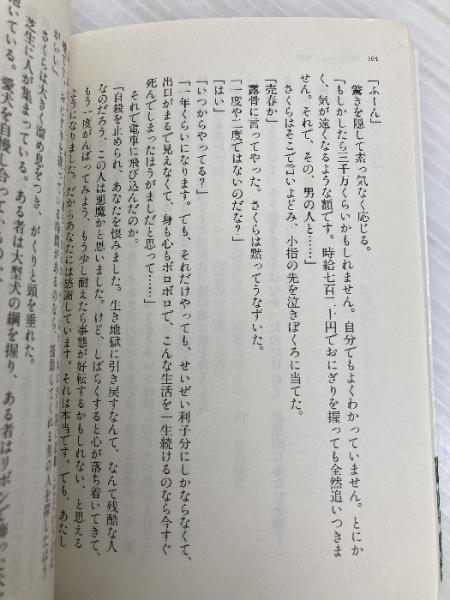 164
「ふーん」
驚きを隠して素っ気なく応じる。
「もしかしたら三千万くらいかもしれません。自分でもよくわかっていません。とにか
く、気が遠くなるような額です。時給七百二十円でおにぎりを握っても全然追いつきま
せん。それで、その、男の人と……」
さくらはそこで言いよどみ、小指の先を泣きぼくろに当てた。
「売春か」
露骨に言ってやった。さくらは黙ってうなずいた。
「一度や二度ではないのだな？」
「はい」
「いつからやってる？」
「一年くらいになります。でも、それだけやっても、せいぜい利子分にしかならなくて、
出口がまるで見えなくて、身も心もボロボロで、こんな生活を一生続けるのなら今すぐ
死んでしまったほうがましだと思って……」
それで電車に飛び込んだのか。
「自殺を止められ、あなたを恨みました。生き地獄に引き戻すなんて、なんて残酷な人
なのだろう、この人は悪魔かと思いました。けど、しばらくすると心が落ち着いてきて、
もう一度がんばってみよう、もう少し耐えたら事態が好転するかもしれない、と思える
ようになりました。だからあなたには感謝しています。それは本当です。でも、あたし
さくらは大きく溜め息をつき、がくりと頭を垂れた。
芝生に人が集まっている。ある者は大型犬の綱を握り、ある者はリボンで飾った
抱いている。愛犬を自慢し合って